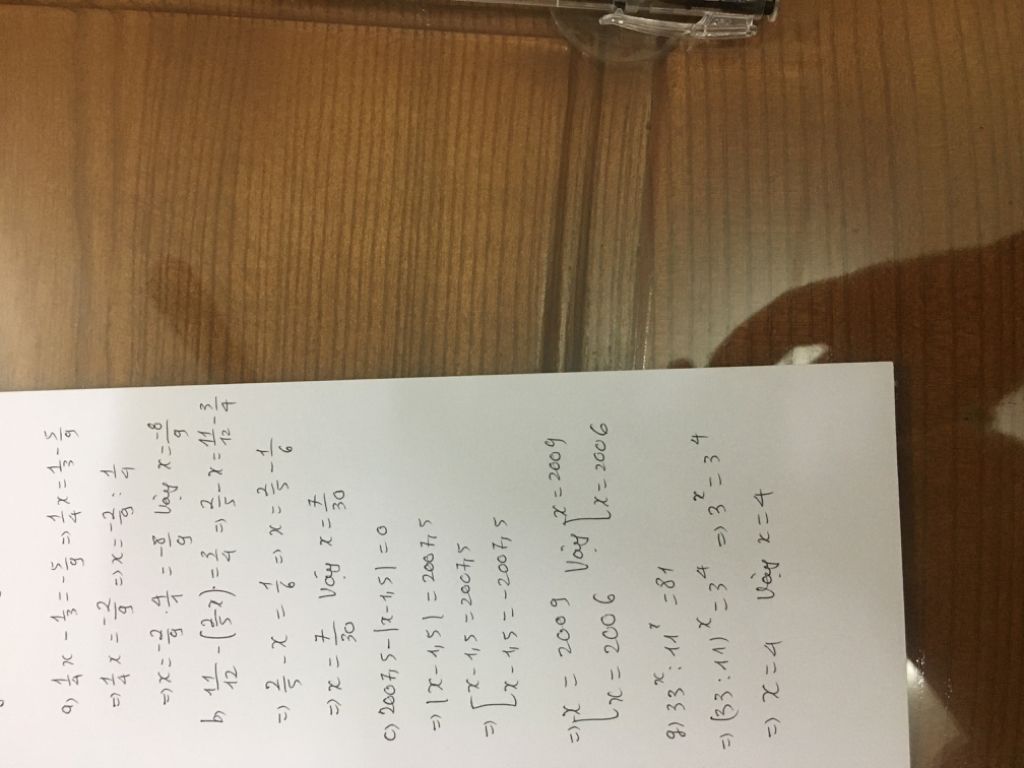 a) 1/4 x - 1/3 = -5/9 => 1/4 x = 1/3 - 5/9
=> 1/4 x = -2/9 => x = -2/9 : 1/4
=> x = -2/9 . 4/1 = -8/9 Vậy x = -8/9
b, 11/12 - (2/5 - x) = 3/4 => 2/5 - x = 11/12 - 3/4
=> 2/5 - x = 1/6 => x = 2/5 - 1/6
=> x = 7/30 Vậy x = 7/30
c) 2007,5 - |x - 1,5| = 0
=> |x - 1,5| = 2007,5
=> [x - 1,5 = 2007,5
[x - 1,5 = -2007,5
=> [x = 2009 Vậy [x = 2009
[x = 2006 [x = 2006
g) 33^x : 11^x = 81
=> (33 : 11)^x = 3^4 => 3^x = 3^4
=> x = 4 Vậy x = 4